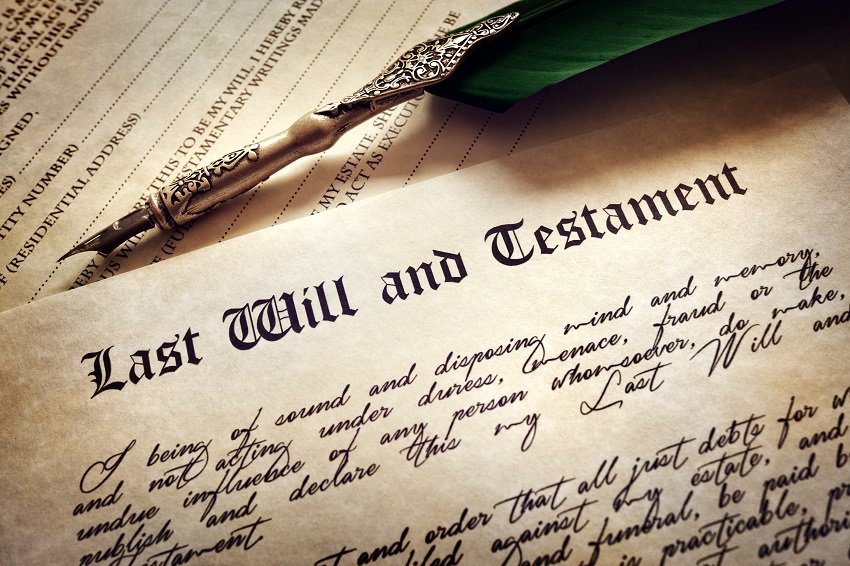 LEGAL ACT AS
THAT THIS
S WITHOUT UNDUE
GNED.
TITY NUMBER)
F (RESIDENTIAL ADDRESS)
THIS TO BE MY WILL, I HEREBY R
TAMENTARY WRITINGS MAD
BE
MY ESTATE, SH
O ACT AS EXECUT
Last Will and Testament
I being of sound and disposing mind and memory,
and not acting under duress, menace, fraud or the
undue influence of any person whomsoever, do make,
publish and declare this my Last Will and
stament
t and order that all just debts for w
iled against my estate, and
and funeral, be paid b
is practicable, pr
authori